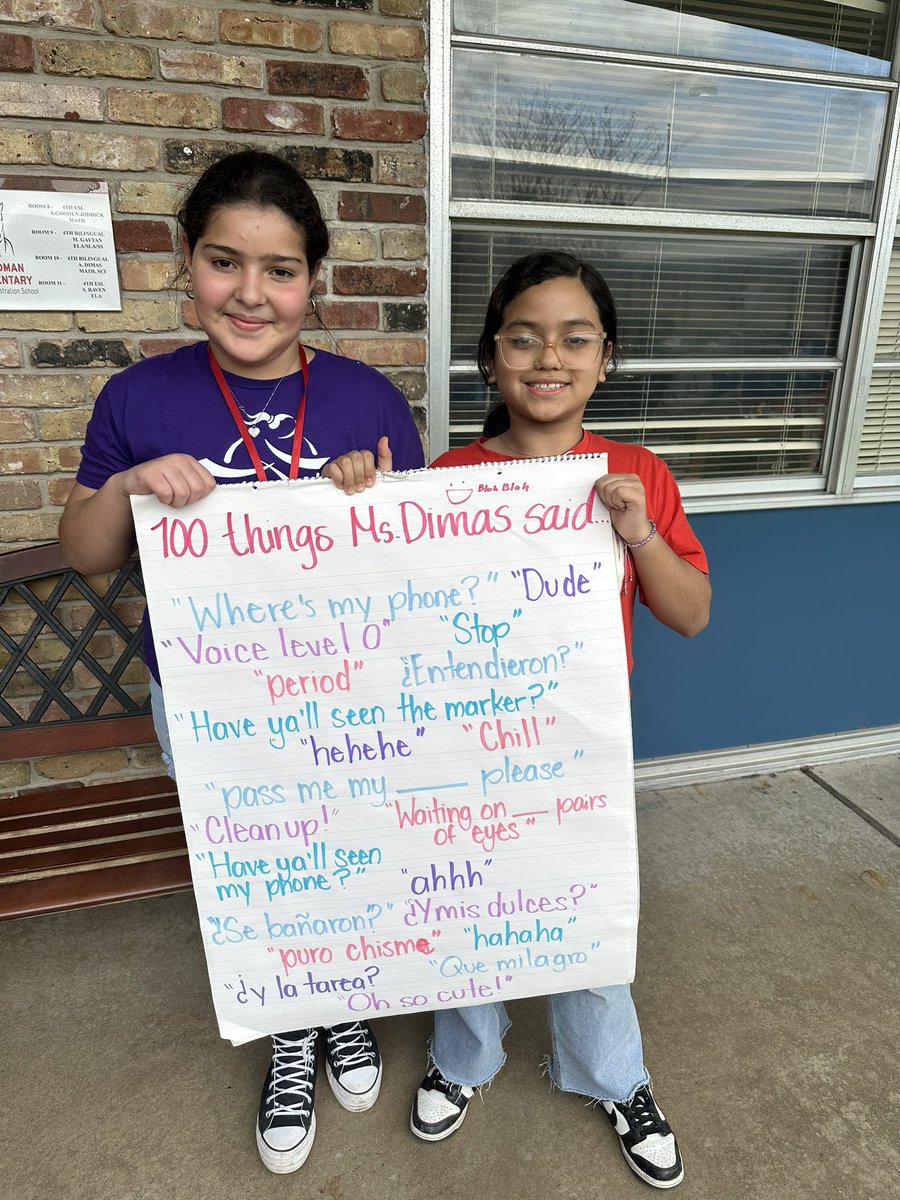 ROOM 8 - 4TH ESL
S.GOODEN-RIDDICK
MATH
ROOM 9 - 4TH BILINGUAL
M. GAYTAN
ELA/SLA/SS
ROOM 10 - 4TH BILINGUAL
A. DIMAS
MATH, SCI
ROOM 11 - 4TH ESL
S. RAVEN
ELA
Blah Blah
100 things Ms. Dimas said...
"Where's my phone?" "Dude"
"Voice level 0" "Stop"
"period" ¿Entendieron?"
"Have ya'll seen the marker?"
"hehehe" "Chill"
"pass me my ____ please"
"Clean up!" "Waiting on __ pairs
of eyes"
"Have ya'll seen
my phone?" "ahhh"
"¿Se bañaron?" "¿Y mis dulces?"
"puro chisme" "hahaha"
"¿y la tarea? "Que milagro"
"Oh so cute!"